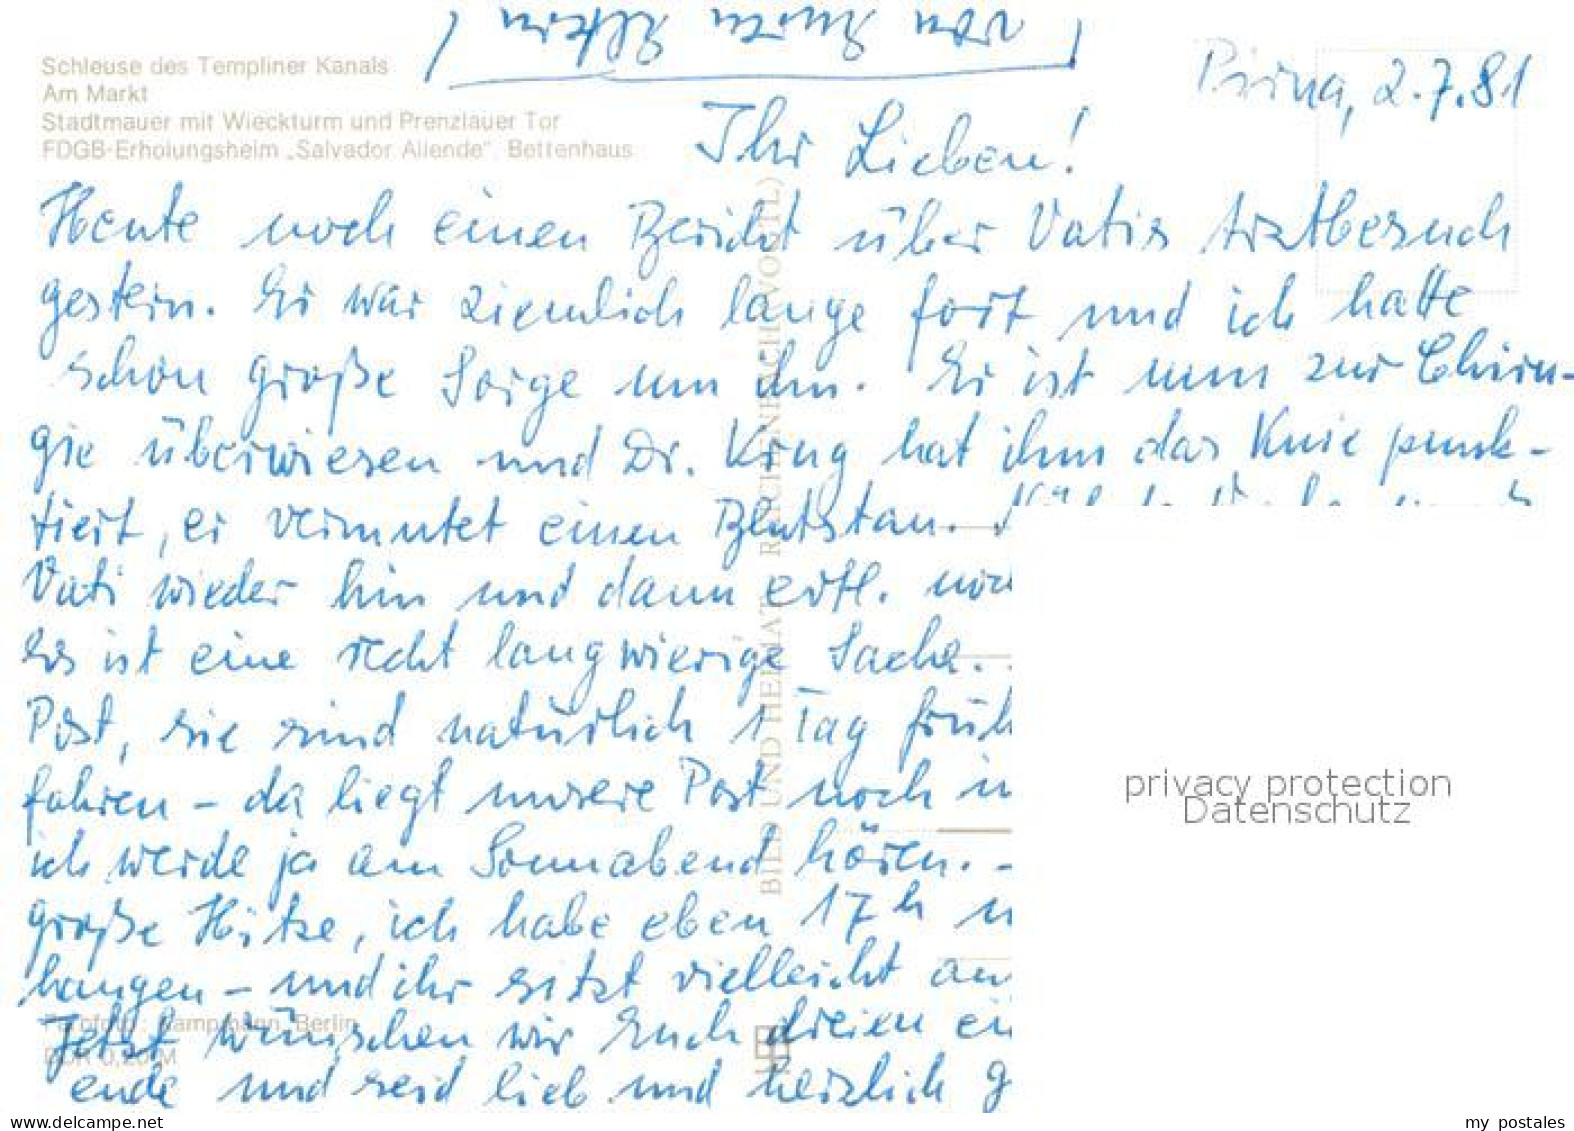 Schleuse des Templiner Kanals
Am Markt
Stadtmauer mit Wieckturm und Prenzlauer Tor
FDGB-Erholungsheim „Salvador Allende“, Bettenhaus
Pirna, 2.7.81
Ihr Lieben!
Heute noch einen Bericht über Vatis Arztbesuch
gestern. Er war ziemlich lange fort und ich hatte
schon große Sorge um ihn. Er ist nun zur Chirur-
gie überwiesen und Dr. Krug hat ihm das Knie punk-
tiert, er vermutet einen Blutstau.
Vati wieder hin und dann evtl. noch
Es ist eine recht langwierige Sache.
Post, sie sind natürlich 1 Tag früh
fahren – da liegt unsere Post noch in
ich werde ja am Sonnabend hören. –
große Hitze, ich habe eben 17 h
hangen – und ihr sitzt vielleicht an
Jetzt wünschen wir Euch dreien ein
ende und seid lieb und herzlich g
von Euren Eltern
BILD UND HEIMAT REICHENBACH (VOGTL)
Farbfoto: Kampmann, Berlin
DDR 0,20 M
privacy protection
Datenschutz
www.delcampe.net
my_postales